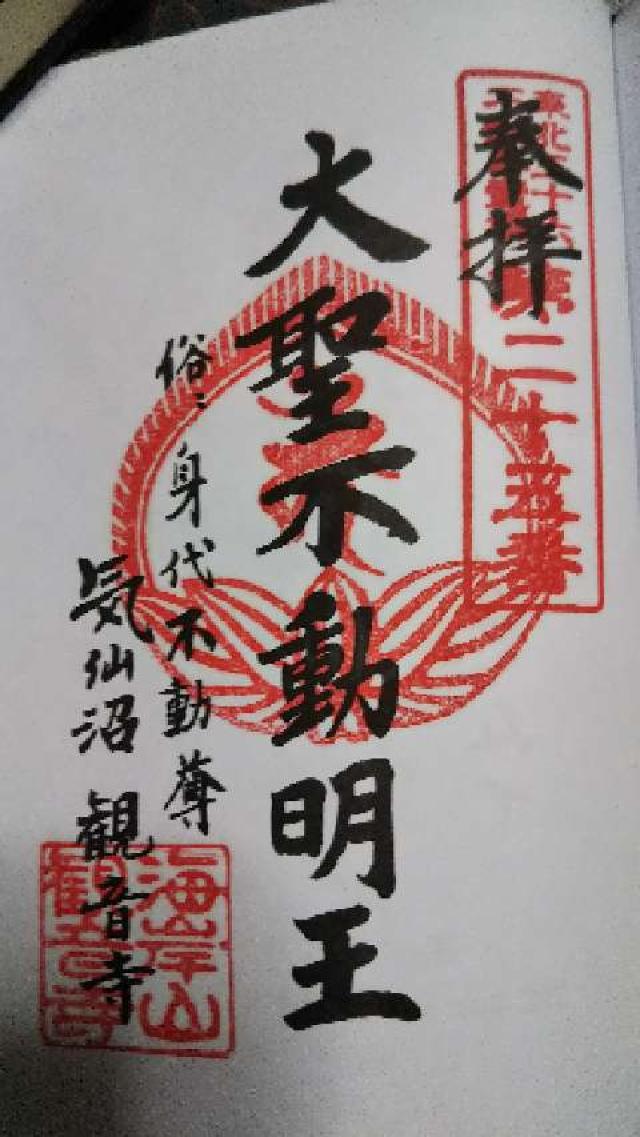 奉拝
東北三十六不動尊
第二十五番
大聖不動明王
俗:身代不動尊
気仙沼 観音寺
海岸山
観音寺